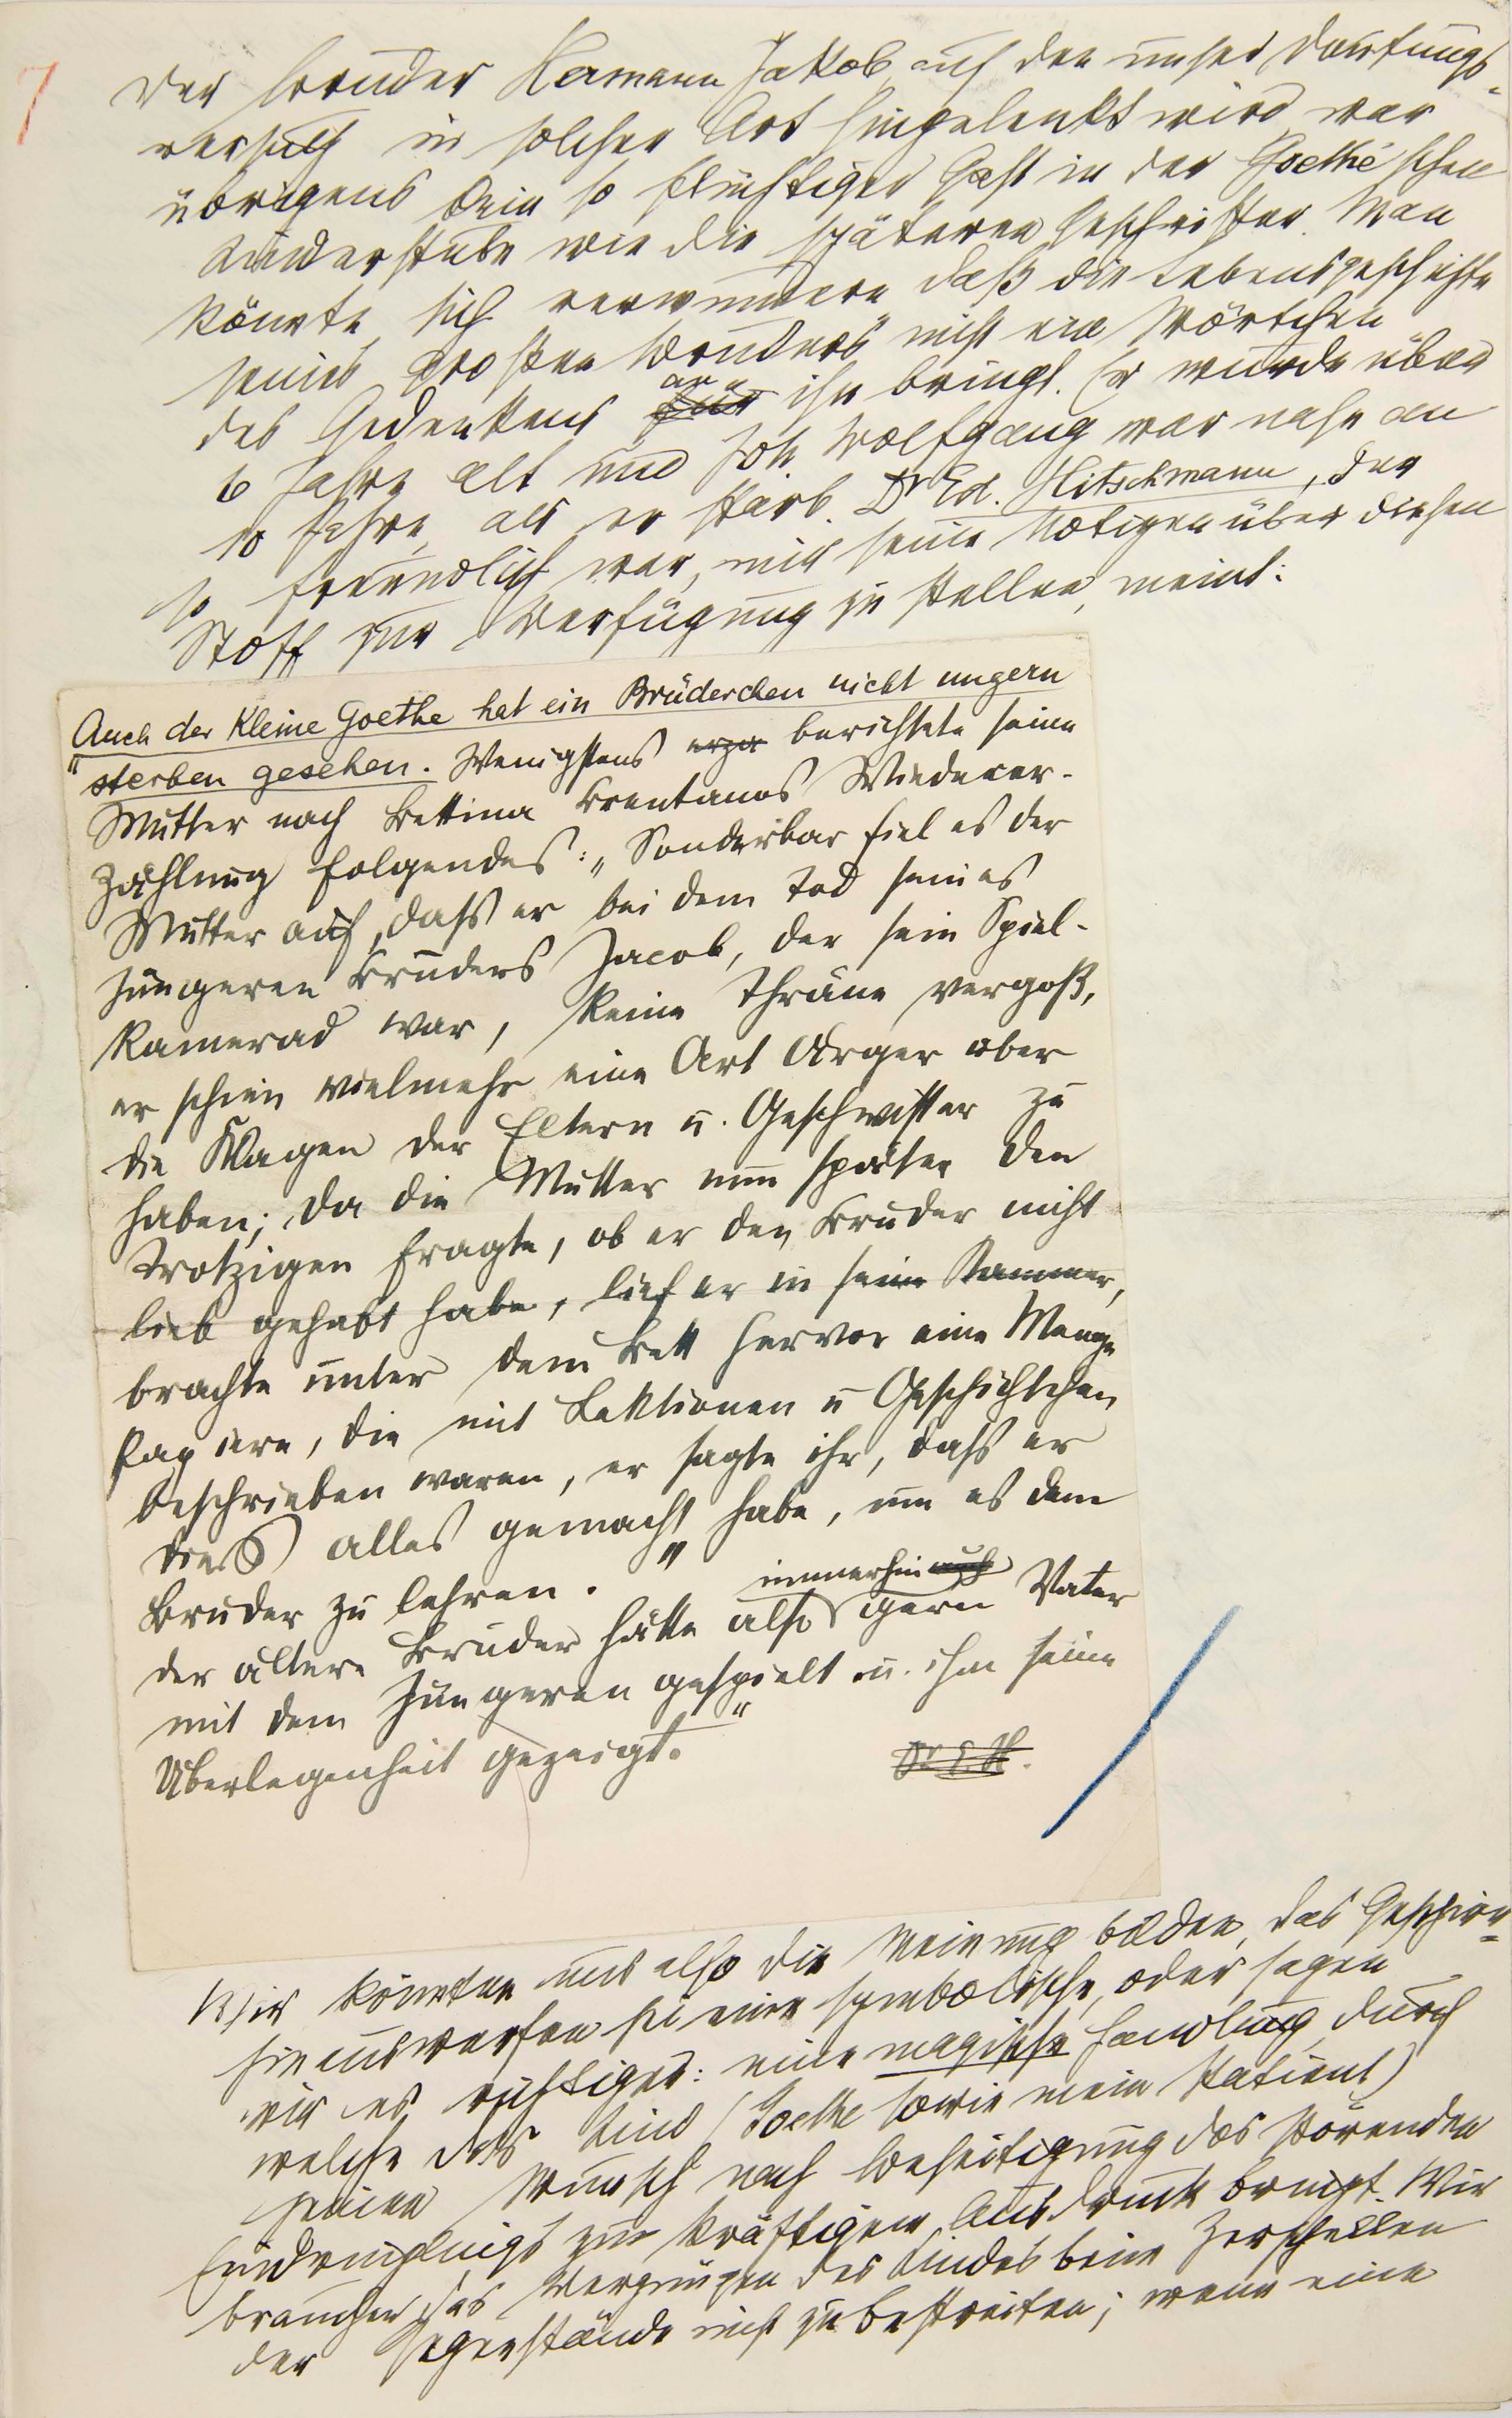 7
Der Bruder Hermann Jakob, auf den unser Deutungs-
versuch in solcher Art hingelenkt wird, war
übrigens kein so flüchtiger Gast in der Goethe'schen
Kinderstube wie die späteren Geschwister. Man
könnte sich verwundern, daß die Lebensgeschichte
seines großen Bruders nicht ein Wörtchen
des Gedenkens an ihn bringt. Er wurde über
6 Jahre alt und Joh. Wolfgang war nahe an
10 Jahre, als er starb. Dr Ed. Hitschmann, der
so freundlich war, mir seine Notizen über diesen
Stoff zur Verfügung zu stellen, meint:
Auch der kleine Goethe hat ein Brüderchen nicht ungern
„sterben gesehen. Wenigstens berichtete seine
Mutter nach Bettina Brentanos Wiederer-
zählung folgendes: „Sonderbar fiel es der
Mutter auf, dass er bei dem Tod seines
jüngeren Bruders Jacob, der sein Spiel-
kamerad war, keine Thräne vergoß,
er schien vielmehr eine Art Ärger über
die Klagen der Eltern u. Geschwister zu
haben; da die Mutter nun später den
Trotzigen fragte, ob er den Bruder nicht
lieb gehabt habe, lief er in seine Kammer,
brachte unter dem Bett hervor eine Menge
Papiere, die mit Lektionen u Geschichtchen
beschrieben waren, er sagte ihr, dass er
dies alles gemacht habe, um es dem
Bruder zu lehren."
der ältere Bruder hätte also immerhin gern Vater
mit dem Jüngeren gespielt u. ihm seine
Überlegenheit gezeigt."
Dr E. H.
Wir könnten uns also die Meinung bilden, das Geschirr-
hinauswerfen sei eine symbolische, oder sagen
wir es richtiger: eine magische Handlung, durch
welche das Kind (Goethe sowie mein Patient)
seinen Wunsch nach Beseitigung des störenden
Eindringlings zum kräftigen Ausdruck bringt. Wir
brauchen das Vergnügen des Kindes beim Zerschellen
der Gegenstände nicht zu bestreiten; wenn eine